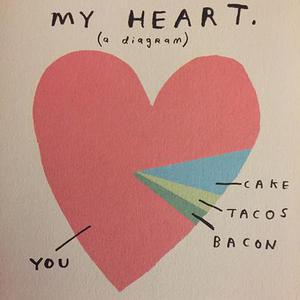 MY HEART.
(a diagram)
CAKE
TACOS
BACON
YOU